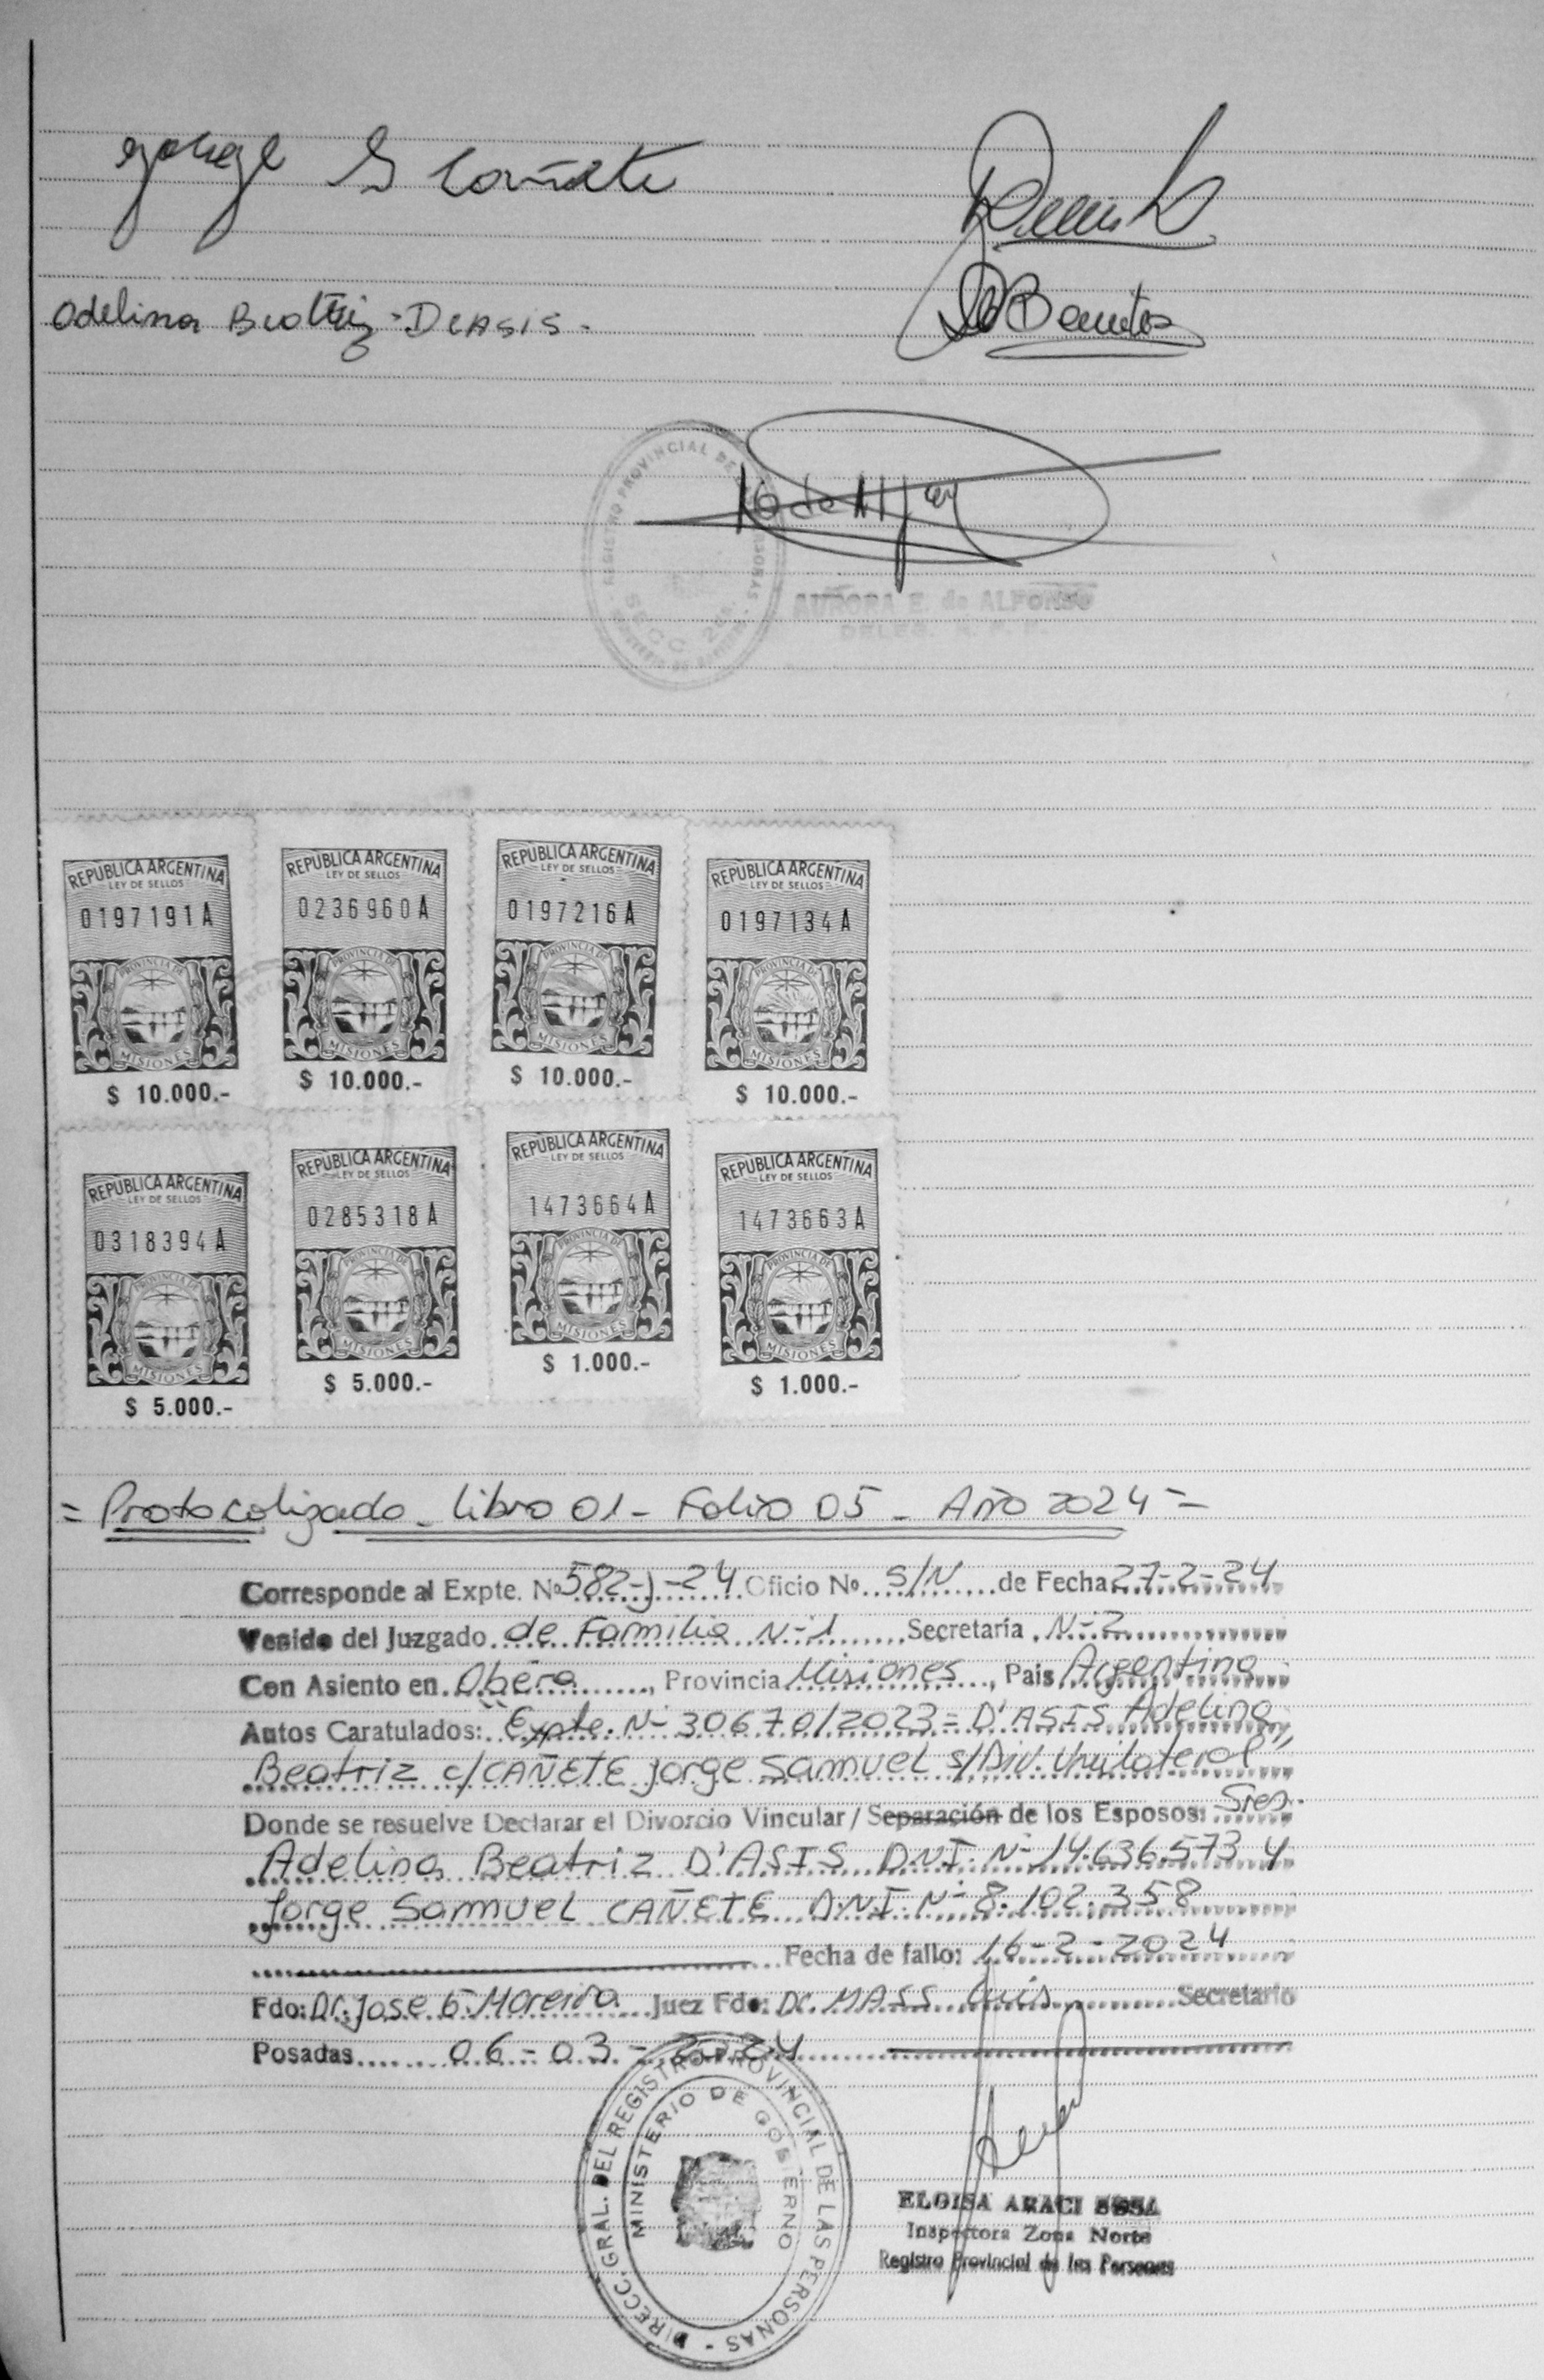 Jorge S Cañete
Odelina Beatriz Deasis.
Benitez
REGISTRO PROVINCIAL DE PERSONAS
SECC.
AURORA E. de ALFONSO
DELEG. R. P. P.
REPUBLICA ARGENTINA REPUBLICA ARGENTINA REPUBLICA ARGENTINA REPUBLICA ARGENTINA
LEY DE SELLOS LEY DE SELLOS LEY DE SELLOS LEY DE SELLOS
0197191A 0236960A 0197216A 0197134A
PROVINCIA DE PROVINCIA DE PROVINCIA DE PROVINCIA DE
MISIONES MISIONES MISIONES MISIONES
$ 10.000.- $ 10.000.- $ 10.000.- $ 10.000.-
REPUBLICA ARGENTINA REPUBLICA ARGENTINA REPUBLICA ARGENTINA REPUBLICA ARGENTINA
LEY DE SELLOS LEY DE SELLOS LEY DE SELLOS LEY DE SELLOS
0318394A 0285318A 1473664A 1473663A
PROVINCIA DE PROVINCIA DE PROVINCIA DE PROVINCIA DE
MISIONES MISIONES MISIONES MISIONES
$ 5.000.- $ 5.000.- $ 1.000.- $ 1.000.-
= Protocolizado - libro 01 - Folio 05 - Año 2024 =
Corresponde al Expte. Nº 582-J-24 Oficio Nº S/N de Fecha 27-2-24
Venido del Juzgado de Familia N-1 Secretaría N-2
Con Asiento en Oberá, Provincia Misiones, Pais Argentina
Autos Caratulados: "Expte. N- 30670/2023 = D'ASIS Adelina
Beatriz c/ CAÑETE Jorge Samuel s/Div. Unilateral"
Donde se resuelve Declarar el Divorcio Vincular / Separación de los Esposos: Sres.
Adelina Beatriz D'ASIS D.N.I. N- 14.636.573 y
Jorge Samuel CAÑETE D.N.I. N- 8.102.358
Fecha de fallo: 16-2-2024
Fdo: Dr. Jose G. Moreira Juez Fdo: Dr. MASS Luis Secretario
Posadas 06-03-2024
DIRECC. GRAL. DEL REGISTRO PROVINCIAL DE LAS PERSONAS
MINISTERIO DE GOBIERNO
ELOISA ARACI SOSA
Inspectora Zona Norte
Registro Provincial de las Personas